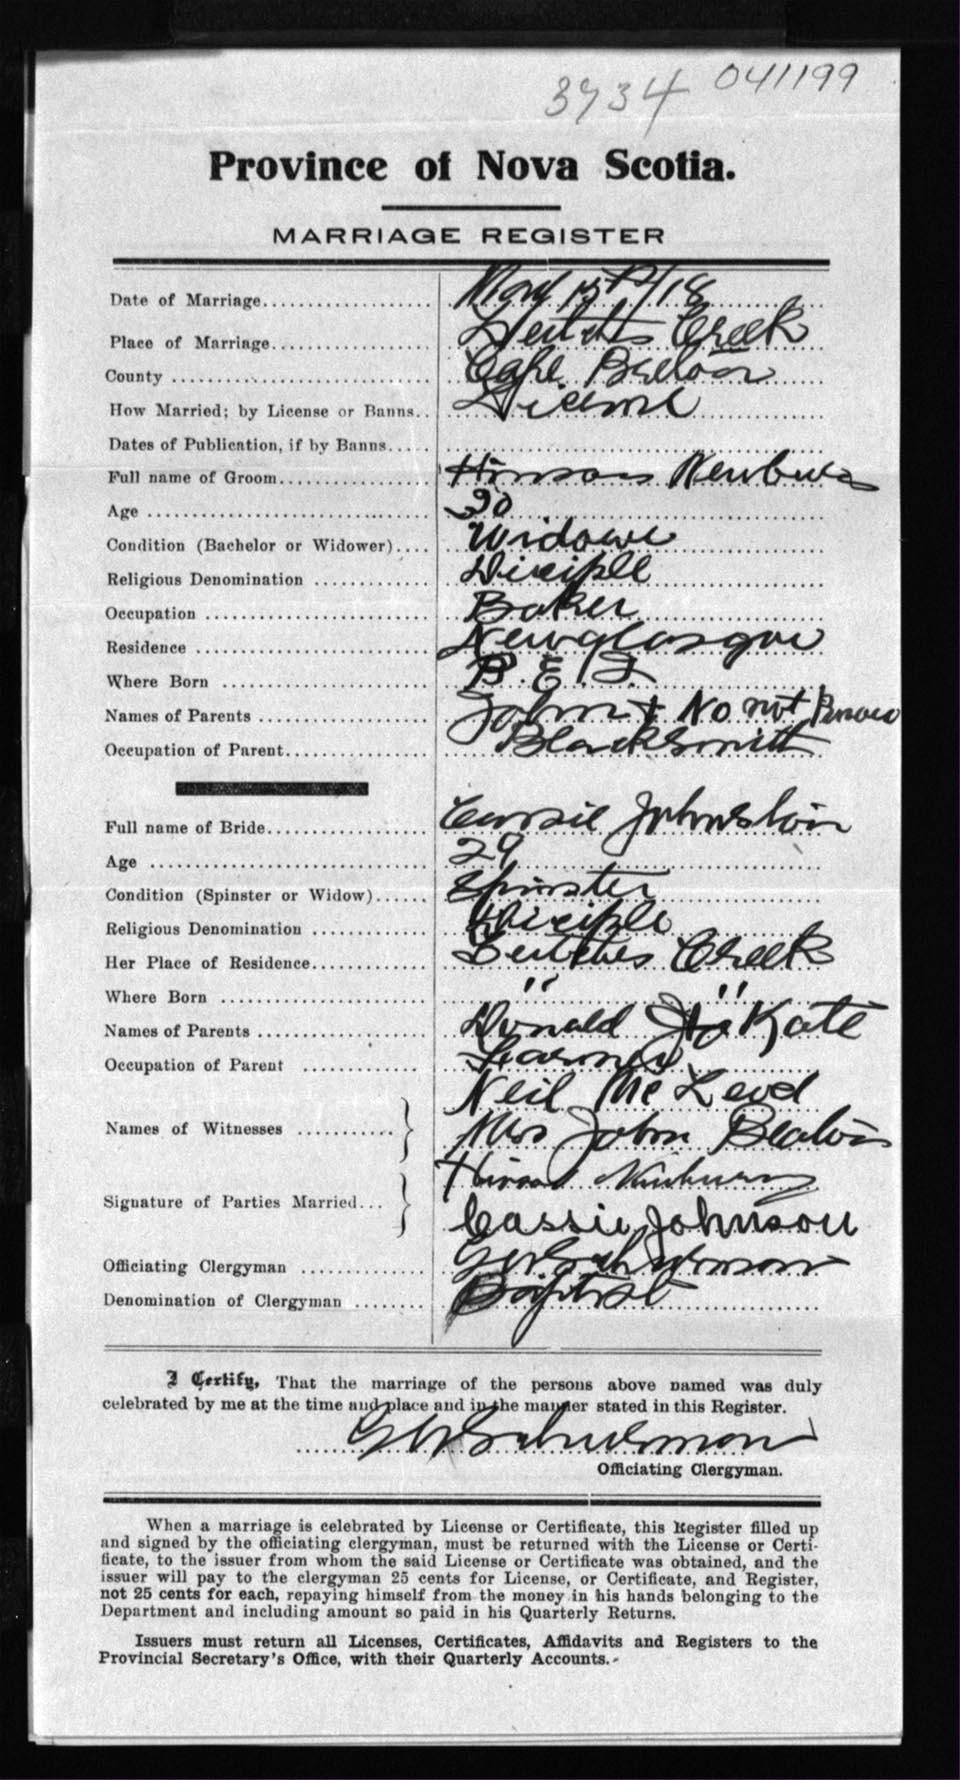 3734 041199
Province of Nova Scotia.
MARRIAGE REGISTER
Date of Marriage 15th/18
Place of Marriage Creek
County Cape Breton
How Married; by License or Banns License
Dates of Publication, if by Banns
Full name of Groom
Age 30
Condition (Bachelor or Widower) Widower
Religious Denomination Disciple
Occupation Baker
Residence New glasgow
Where Born P. E. I.
Names of Parents John + No not Known
Occupation of Parent Blacksmith
Full name of Bride Cassie Johnston
Age 29
Condition (Spinster or Widow) Spinster
Religious Denomination Disciple
Her Place of Residence Creek
Where Born " "
Names of Parents Donald Kate
Occupation of Parent Farmer
Neil Mc Leod
Names of Witnesses
Mrs John
Signature of Parties Married
Cassie Johnson
Officiating Clergyman
Denomination of Clergyman Baptist
I Certify, That the marriage of the persons above named was duly
celebrated by me at the time and place and in the manner stated in this Register.
Officiating Clergyman.
When a marriage is celebrated by License or Certificate, this Register filled up
and signed by the officiating clergyman, must be returned with the License or Certi-
ficate, to the issuer from whom the said License or Certificate was obtained, and the
issuer will pay to the clergyman 25 cents for License, or Certificate, and Register,
not 25 cents for each, repaying himself from the money in his hands belonging to the
Department and including amount so paid in his Quarterly Returns.
Issuers must return all Licenses, Certificates, Affidavits and Registers to the
Provincial Secretary's Office, with their Quarterly Accounts.